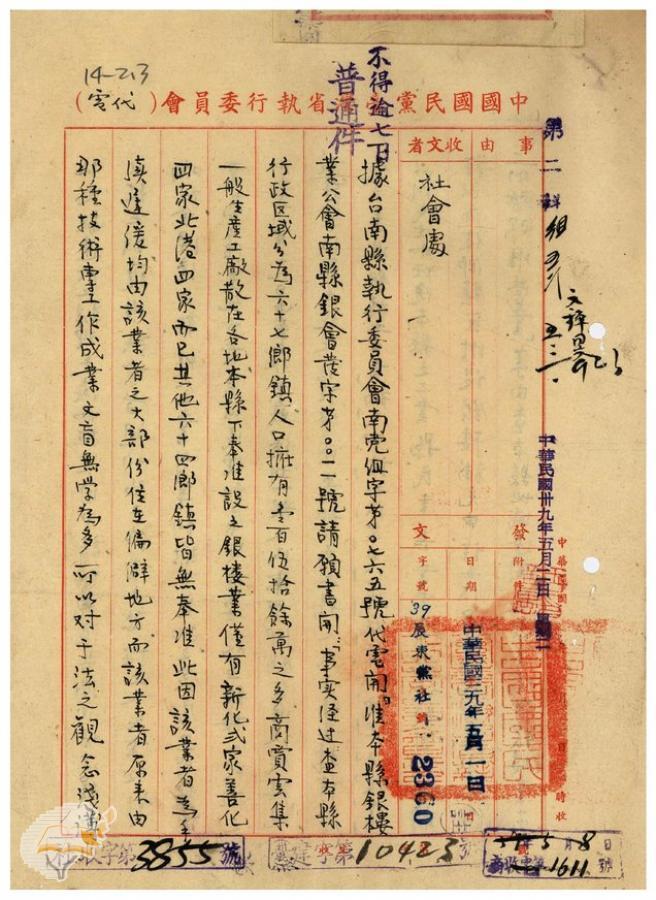 14-213
中國國民黨　　省執行委員會（代電）
普通件
不得逾七日
第二科
中華民國卅九年五月二日
事由
收文者
社會處
發文
附件
日期
中華民國三九年五月一日
字號
39辰東黨社　2360
據台南縣執行委員會南虎組字第〇七六五號代電開。准本縣銀樓
業公會南縣銀會茂字第〇〇一號請願書開「事实経过盖本縣
行政区域分為六十七鄉鎮人口擁有壱百伍拾餘萬之多商賈雲集
一般生產工廠散在各地本縣下奉准設之銀楼業僅有新化弍家善化
四家北港四家而已其他六十四鄉鎮皆無奉准此因該業者為手
續遲缓均由該業者之大部份住在偏僻地方而該業者原来由
那種技術専工作成業文盲無学為多所以对于法之觀念浅薄
字第3855號
字第10423號
5月8日
1611號